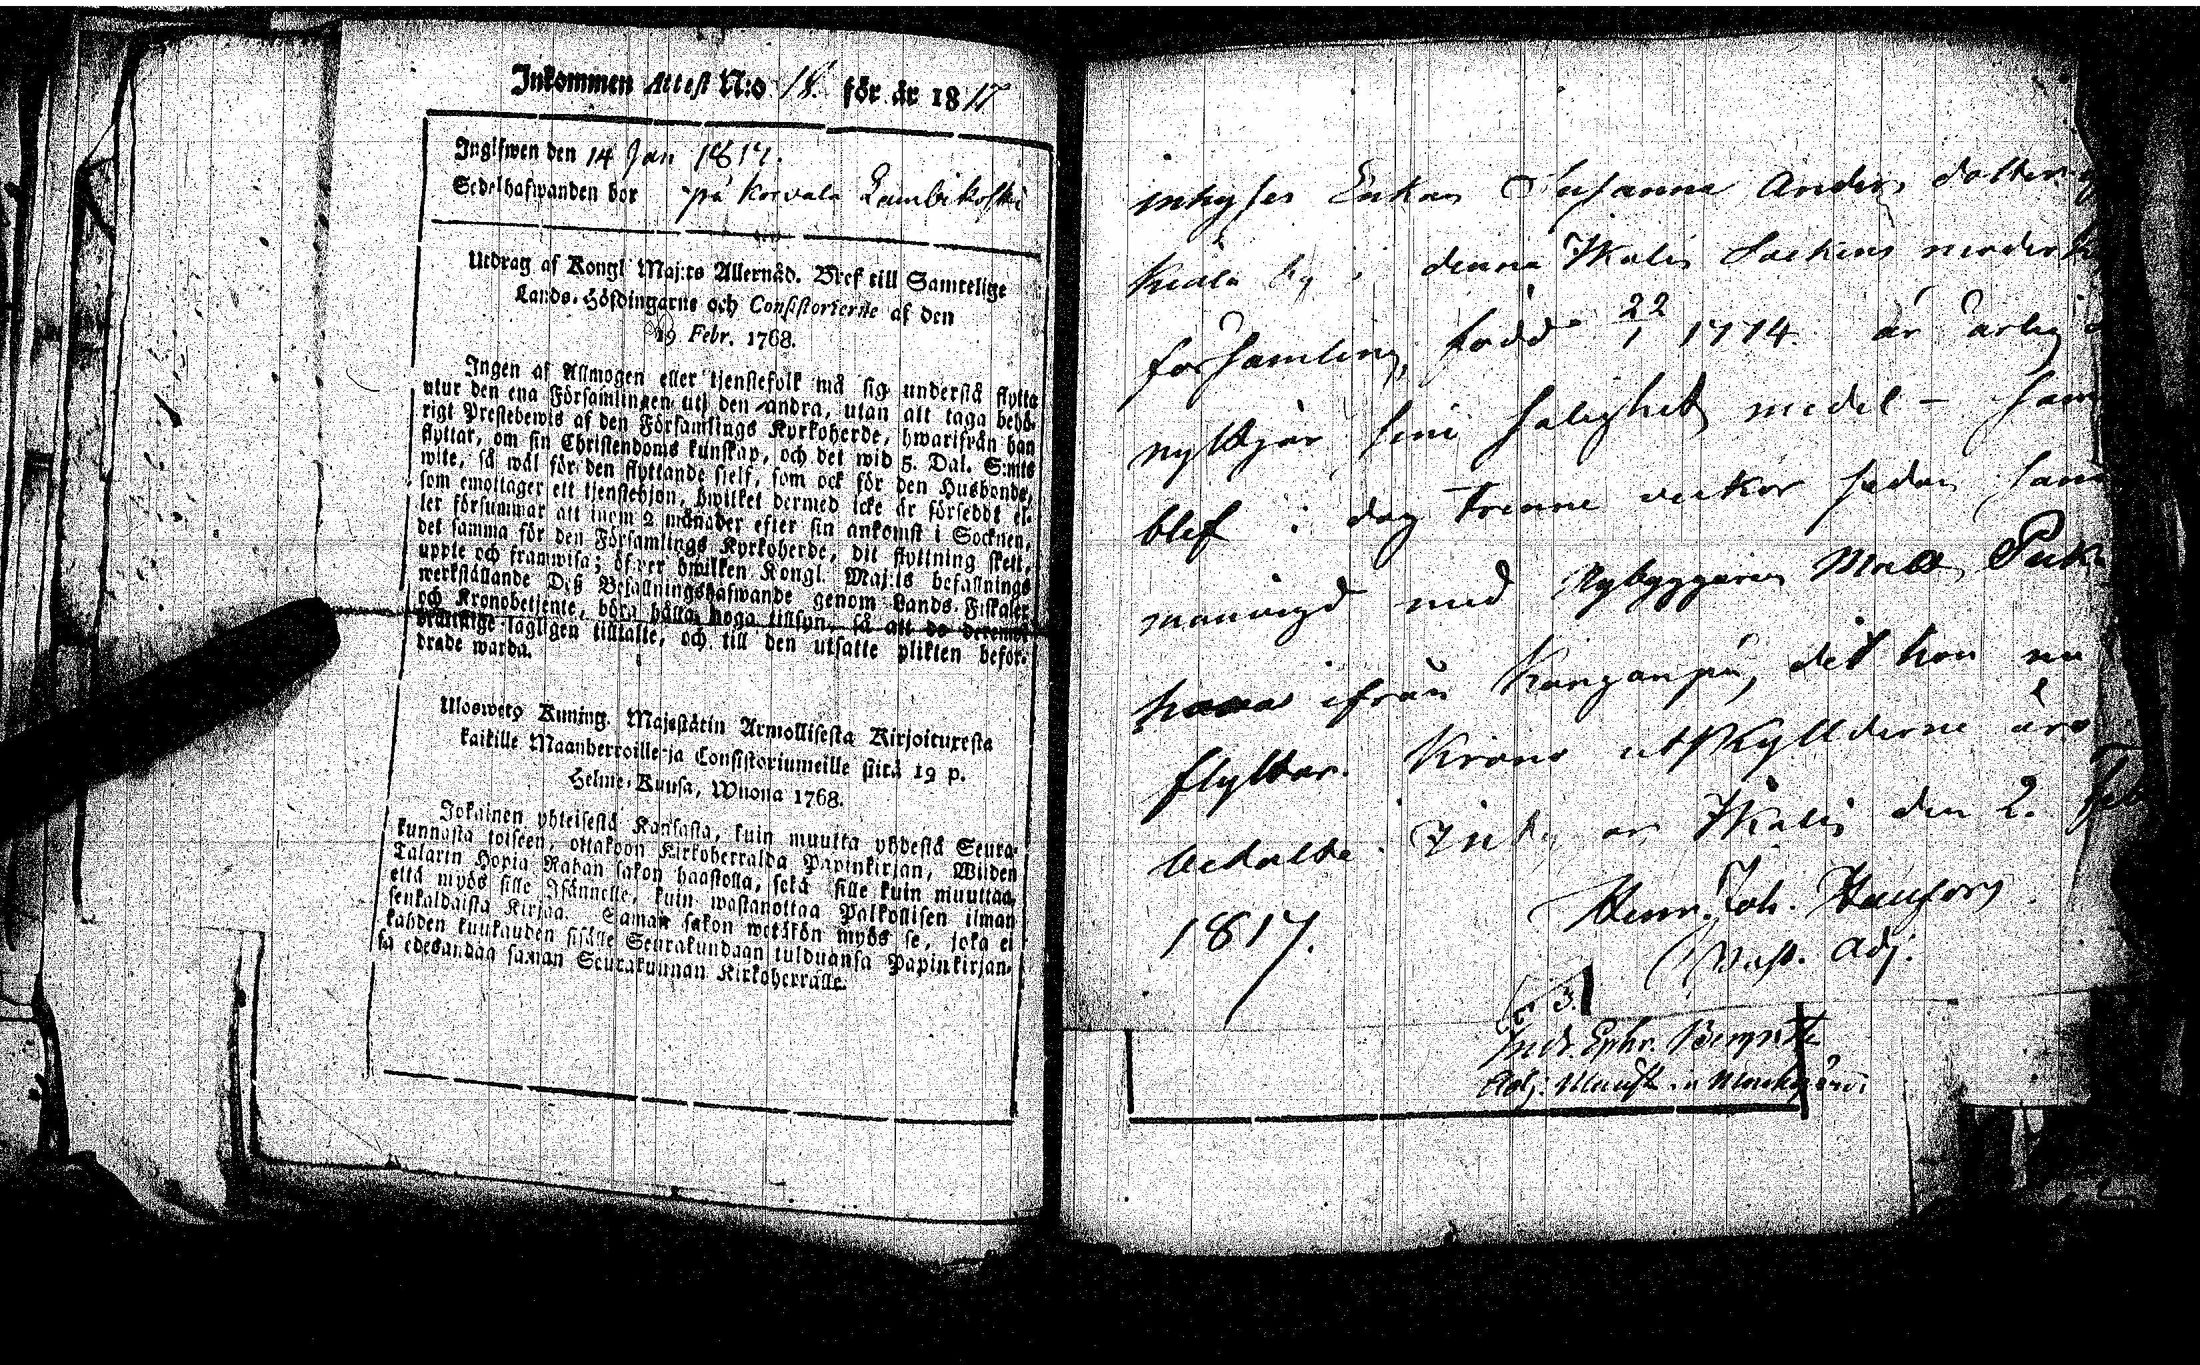 Inkommen Attest N:o 18. för år 1817
Ingifwen den 14 Jan 1817.
Sedelhafwanden bor på Korvala Lambikoski
Utdrag af Kongl Maj:ts Allernåd. Bref till Samtelige
Lands-Höfdingarne och Consistorierne af den
19 Febr. 1768.
Ingen af Allmogen eller tjenstefolk må sig understå flytta
utur den ena Församlingen uti den andra, utan att taga behö-
rigt Prestebewis af den Församlings Kyrkoherde, hwarifrån han
flyttar, om sin Christendoms kunskap, och det wid 5. Dal. S:mts
wite, så wäl för den flyttande sjelf, som ock för den Husbonde,
som emottager ett tjenstehjon, hwilket dermed icke är försedt el-
ler försummar att inom 2 månader efter sin ankomst i Socknen,
det samma för den Församlings Kyrkoherde, dit flyttning skett,
uppte och framwisa; öfwer hwilken Kongl. Maj:ts befallnings
werkställande Deß Befallningshafwande genom Lands-Fiskaler
och Kronobetjente, böra hålla noga tillsyn, så att de deremot
brottslige lagligen tilltalte, och till den utsatte plikten befor-
drade warda.
Uloswetp Kuning. Majestätin Armollisesta Kirjoituxesta
kaikille Maanherroille ja Consistoriumeille siitä 19 p.
Helme-Kuusa, Wuona 1768.
Jokainen yhteisestä Kansasta, kuin muutta yhdestä Seura-
kunnasta toiseen, ottakoon Kirkoherralda Papinkirjan, Wiiden
Talarin Hopia Rahan sakon haastolla, sekä sille kuin muuttaa,
että myös sille Isännelle, kuin wastanottaa Palkollisen ilman
senkaldaista Kirjaa. Saman sakon wetäkön myös se, joka ei
kahden kuukauden sisälle Seurakundaan tulduansa Papinkirjan-
sa edesandaa saman Seurakunnan Kirkoherralle.
inhyses Enkan Susanna Anders dotter
by i denna Ikalis Sockens moder
församling, född 22/1 1774. är ärlig
nyttjar sine salighets medel - sam
blef i dag trenne veckor sedan sam
manvigd med Nybyggaren Matts
ifrån Kanganpä, dit hon nu
flyttar. Krono utskylderne äro
betalte. Ikalis den 2. Feb
1817. Henr. Joh. Haufors
Past. Adj.
Ephr.
Adj.